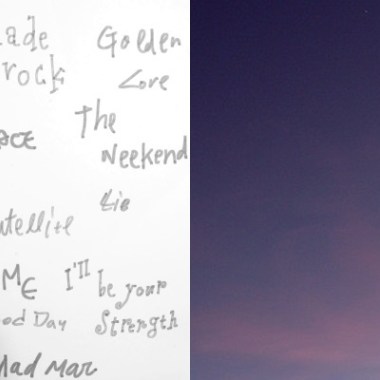 ade
rock
Golden
Love
The
Weekend
Lie
atellite
ME
I'll be your
Strength
od Day
Mad Max